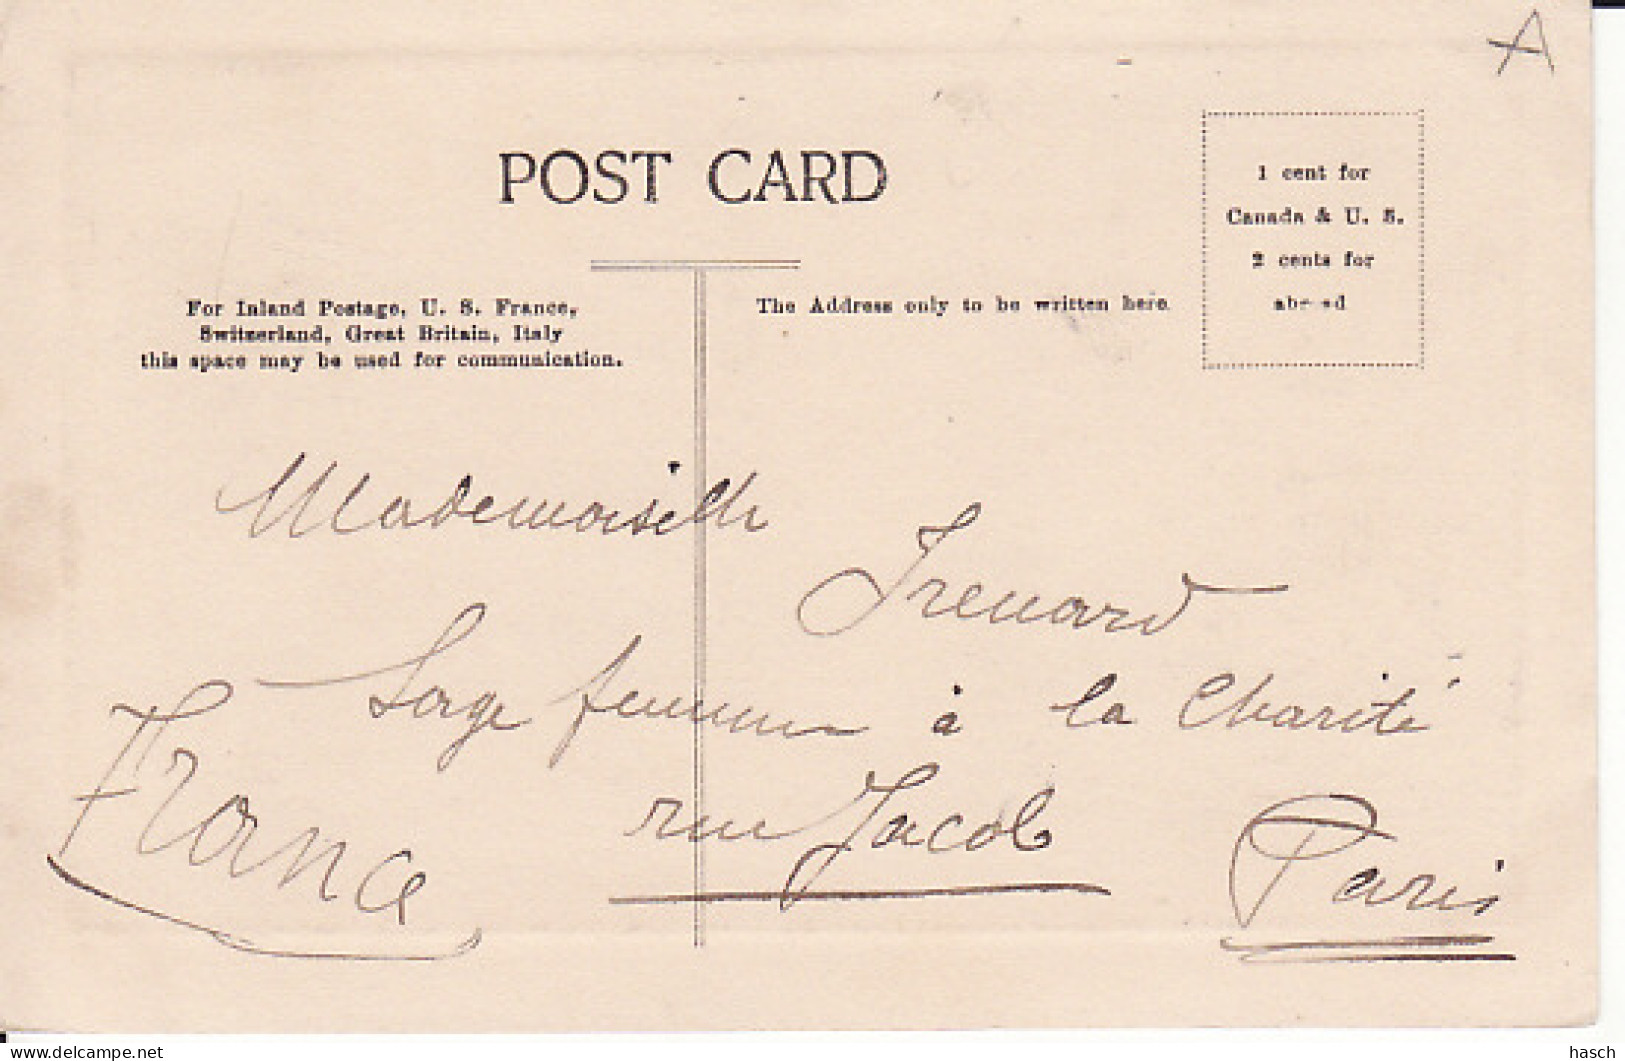 A
POST CARD
1 cent for
Canada & U. S.
2 cents for
abroad
For Inland Postage, U. S. France,
Switzerland, Great Britain, Italy
this space may be used for communication.
The Address only to be written here.
Mademoiselle
Sage femme à la Charité
rue Jacob
Paris
France
hasch
www.delcampe.net